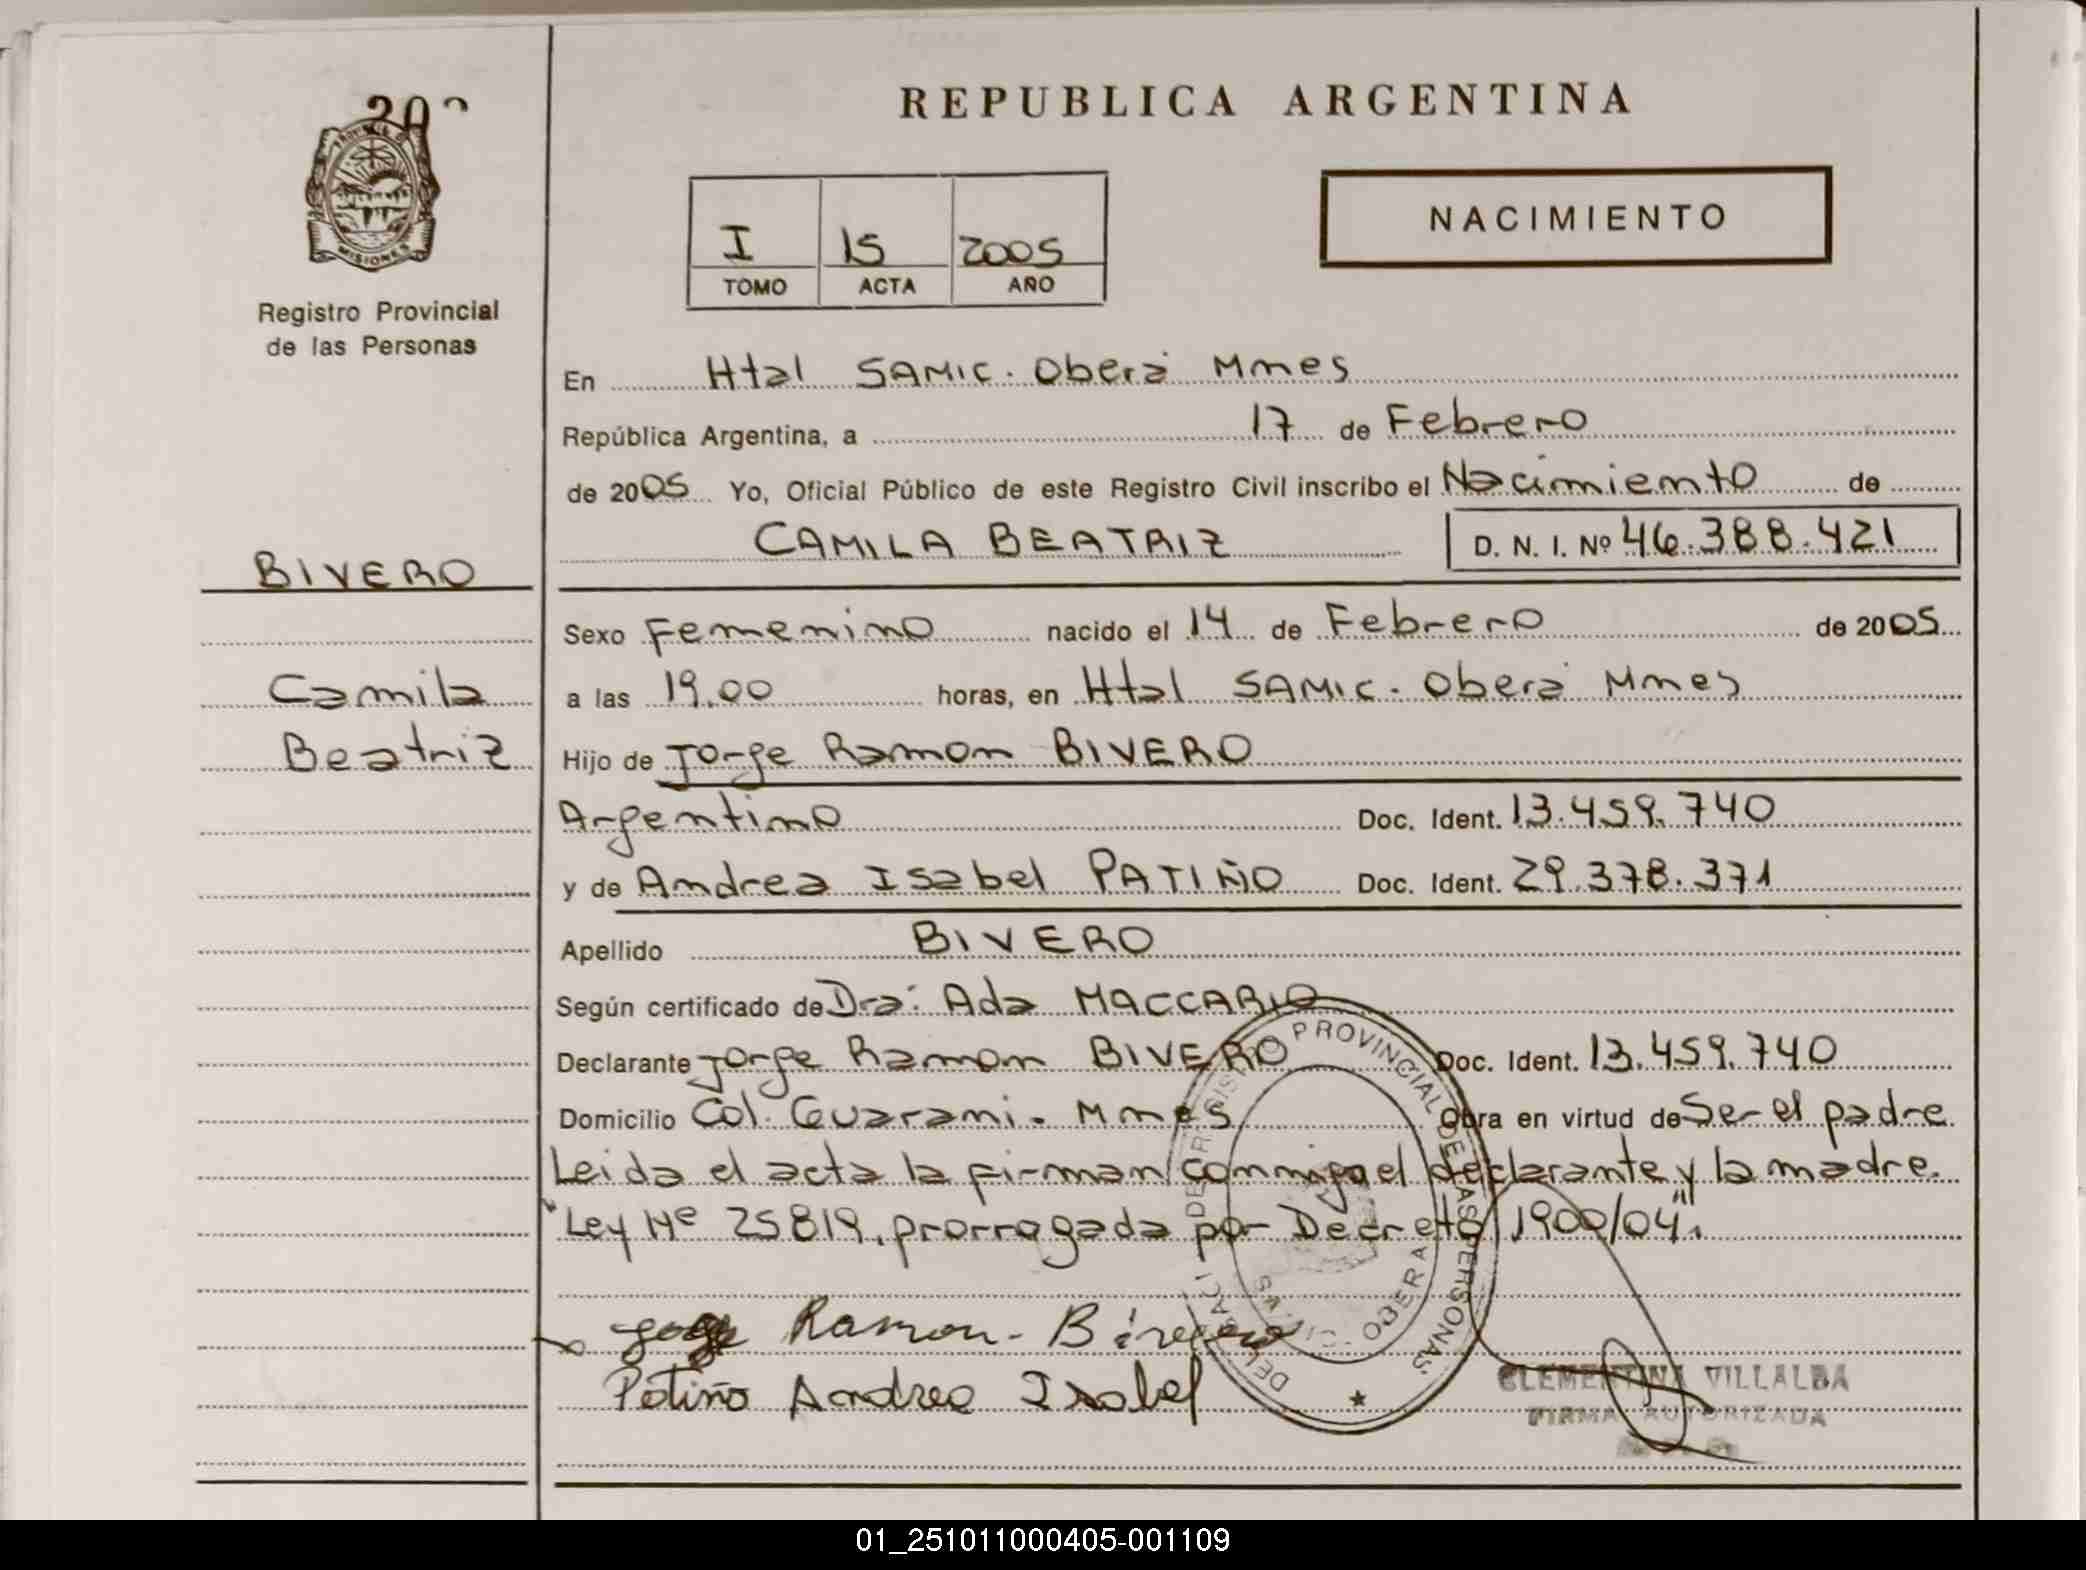 REPUBLICA ARGENTINA
NACIMIENTO
I 15 2005
TOMO ACTA AÑO
MISIONES
Registro Provincial
de las Personas
BIVERO
Camila
Beatriz
En Htal SAMIC. Oberá Mnes
República Argentina, a 17 de Febrero
de 2005 Yo, Oficial Público de este Registro Civil inscribo el Nacimiento de
CAMILA BEATRIZ D. N. I. Nº 46.388.421
Sexo Femenino nacido el 14 de Febrero de 2005
a las 19.00 horas, en Htal SAMIC. Oberá Mnes
Hijo de Jorge Ramon BIVERO
Argentino Doc. Ident. 13.459.740
y de Andrea Isabel PATIÑO Doc. Ident. 29.378.371
Apellido BIVERO
Según certificado de Dra. Ada MACCARIO
Declarante Jorge Ramon BIVERO Doc. Ident. 13.459.740
Domicilio Col. Guarani. Mnes Obra en virtud de Ser el padre
Leida el acta la firman conmigo el declarante y la madre.
"Ley Nº 25819, prorrogada por Decreto 1900/04".
Ramon
Patiño Andrea Isabel
PROVINCIAL DE LAS PERSONAS
OBERA
CLEMENTINA VILLALBA
FIRMA AUTORIZADA
01_251011000405-001109